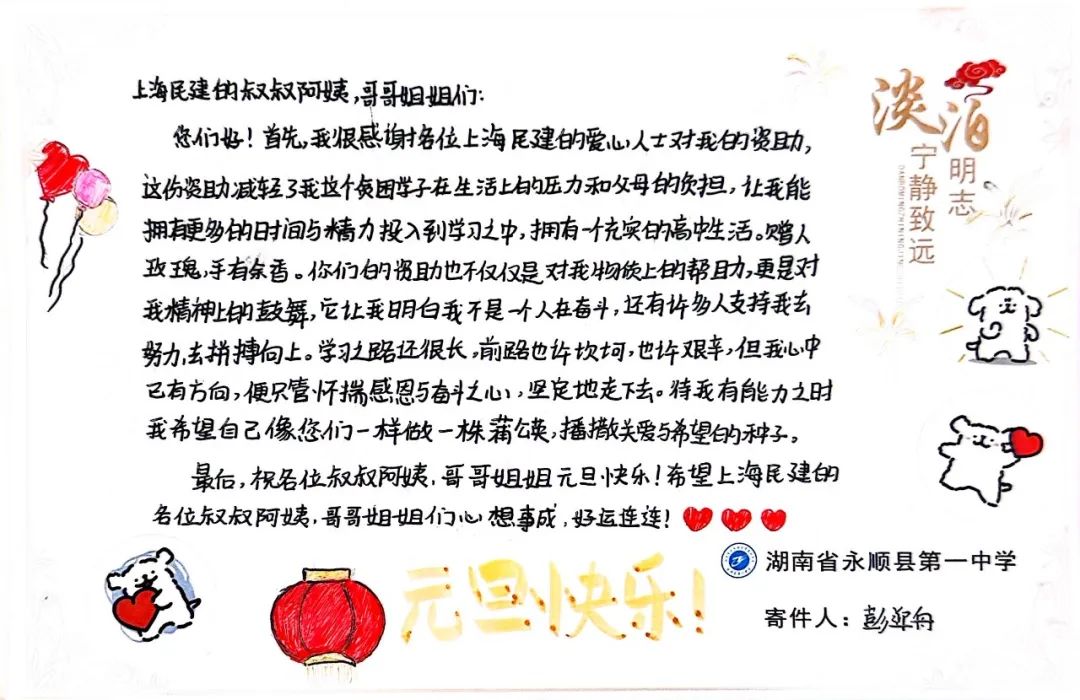 上海民建的叔叔阿姨，哥哥姐姐们：
您们好！首先，我很感谢各位上海民建的爱心人士对我的资助，
这份资助减轻了我这个贫困学子在生活上的压力和父母的负担，让我能
拥有更多的时间与精力投入到学习之中，拥有一个充实的高中生活。赠人
玫瑰，手有余香。你们的资助也不仅仅是对我物质上的帮助，更是对
我精神上的鼓舞，它让我明白我不是一个人在奋斗，还有许多人支持我去
努力，去拼搏向上。学习之路还很长，前路也许坎坷，也许艰辛，但我心中
已有方向，便只管怀揣感恩与奋斗之心，坚定地走下去。待我有能力之时
我希望自己像您们一样做一株蒲公英，播撒关爱与希望的种子。
最后，祝各位叔叔阿姨，哥哥姐姐元旦快乐！希望上海民建的
各位叔叔阿姨，哥哥姐姐们心想事成，好运连连！
淡泊
明志
宁静致远
元旦快乐！
湖南省永顺县第一中学
寄件人：彭